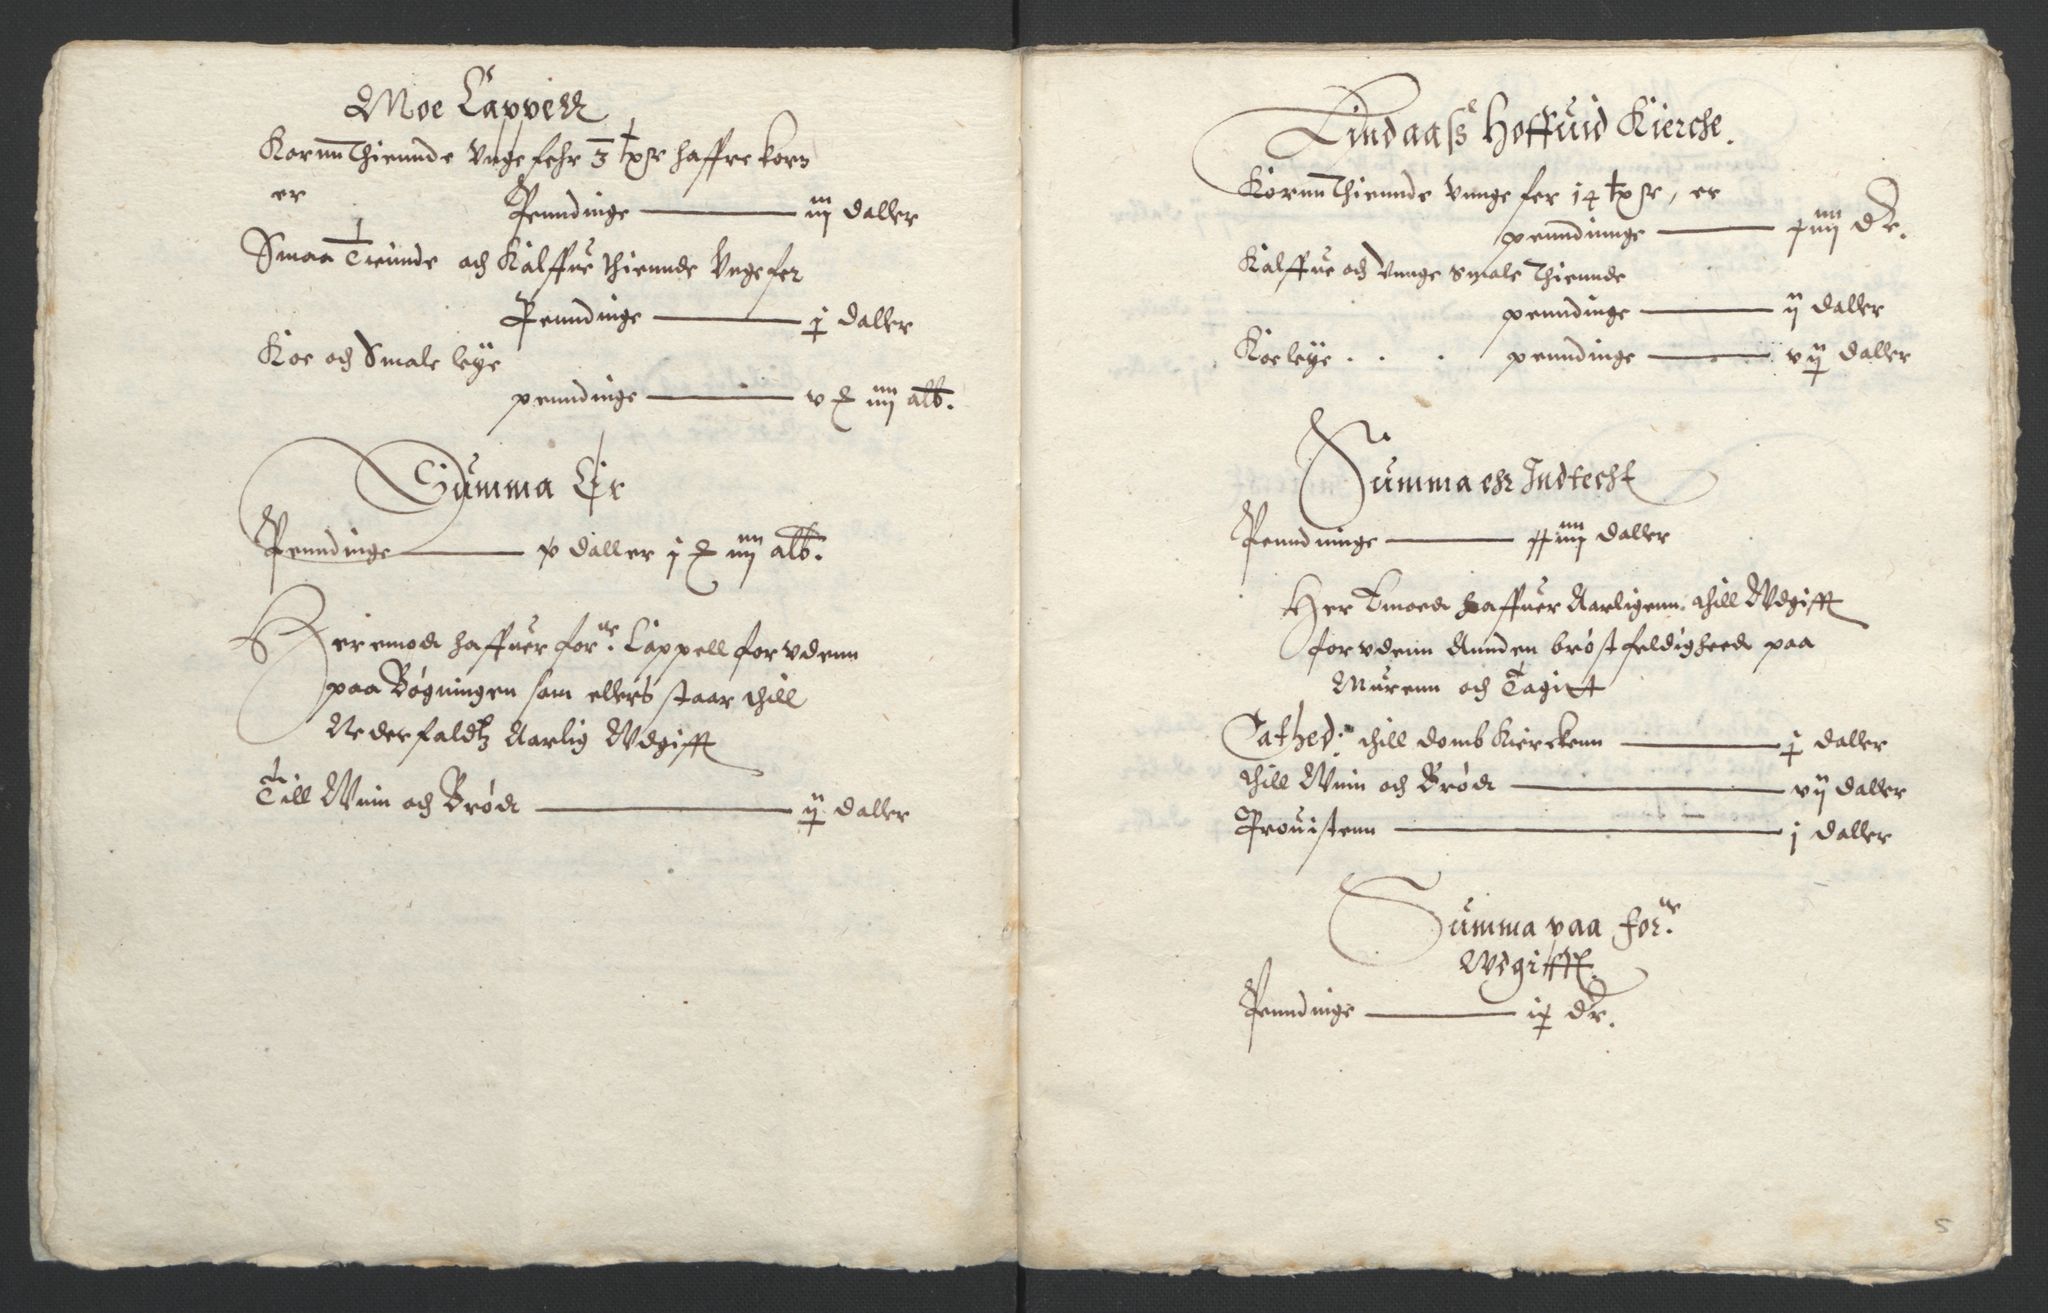 Moe Cappell
Kornn Thiennde Vngefehr 3 tpr haffre korn
er
Penndinge — iiij daller
Smaa Tiennde och Kalffue thiennde Vngefer
Penndinge — j daller
Koe och Smale leye
penndinge — v iiij alb.
Summa Er
Penndinge — x daller j iiij alb.
Heremodt haffuer for:ne Cappell forvdenn
paa Bøgningen som ellers staar thill
Nederfaldtz Aarlig Wdgifft
Till Wiin och Brødt — ij daller
Lindaass Hoffuid Kierche.
Kornn Thiennde vnnge fer 14 tpr, er
penndinnge — dr.
Kalffue och vnnge smale Thiennde
penndinge — ij daller
Koe leye . . . penndinge — vij daller
Summa ehr Indtecht
Penndninge — daller
Her Emodt haffuer Aarligenn thill Wdgifft
forvdenn Annden brøstfeldigheedt paa
Murenn och Tagit
Cathed: thill domb Kierckenn — j daller
thill Wiin och Brødt — vij daller
Prouistenn — j daller
Summa paa for:ne
Wdgifft.
Penndinge — ix dr.
5